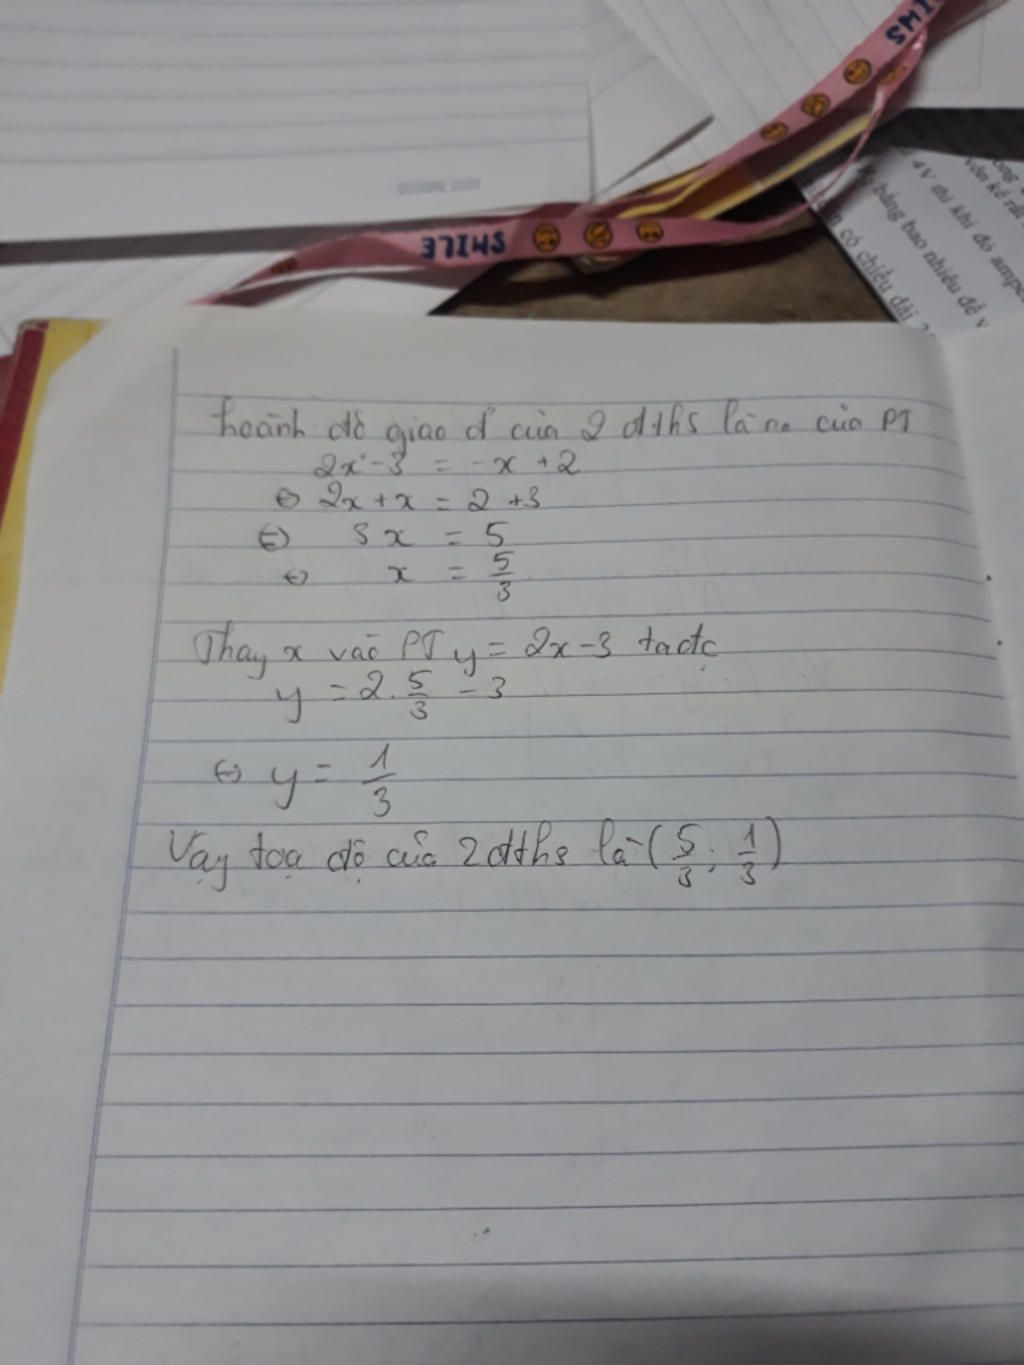 SMILE
SMI
4V thì khi đó ampe
bằng bao nhiêu để v
có chiều dài
hoành độ giao đ' của 2 đths là no của PT
2x - 3 = -x + 2
⇔ 2x + x = 2 + 3
⇔ 3x = 5
⇔ x = 5/3
Thay x vào PT y = 2x - 3 ta đc
y = 2. 5/3 - 3
⇔ y = 1/3
Vậy toạ độ của 2 đths là (5/3; 1/3)